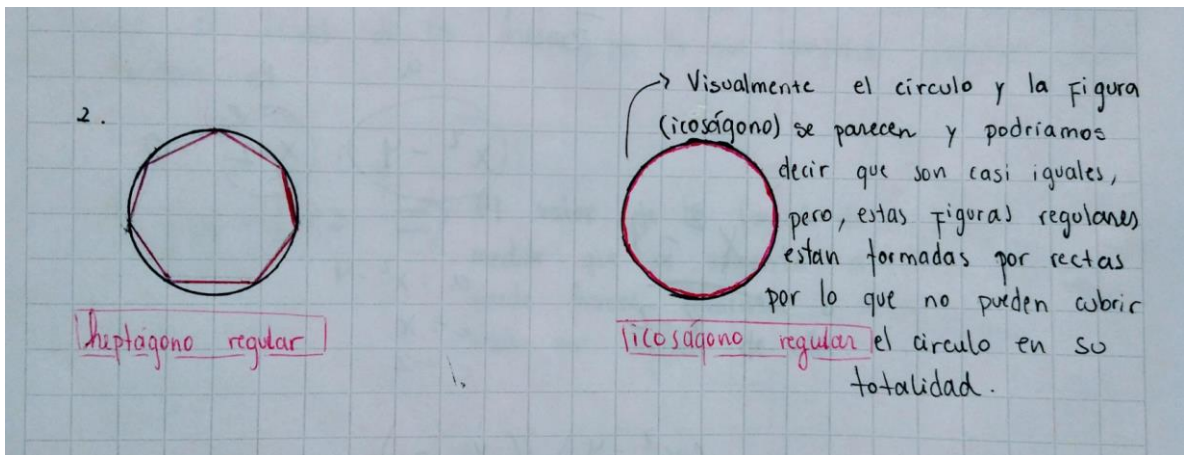 2.
heptágono regular
Visualmente el circulo y la Figura
(icoságono) se parecen y podríamos
decir que son casi iguales,
pero, estas Figuras regulares
estan formadas por rectas
por lo que no pueden cubrir
el circulo en su
totalidad.
icoságono regular